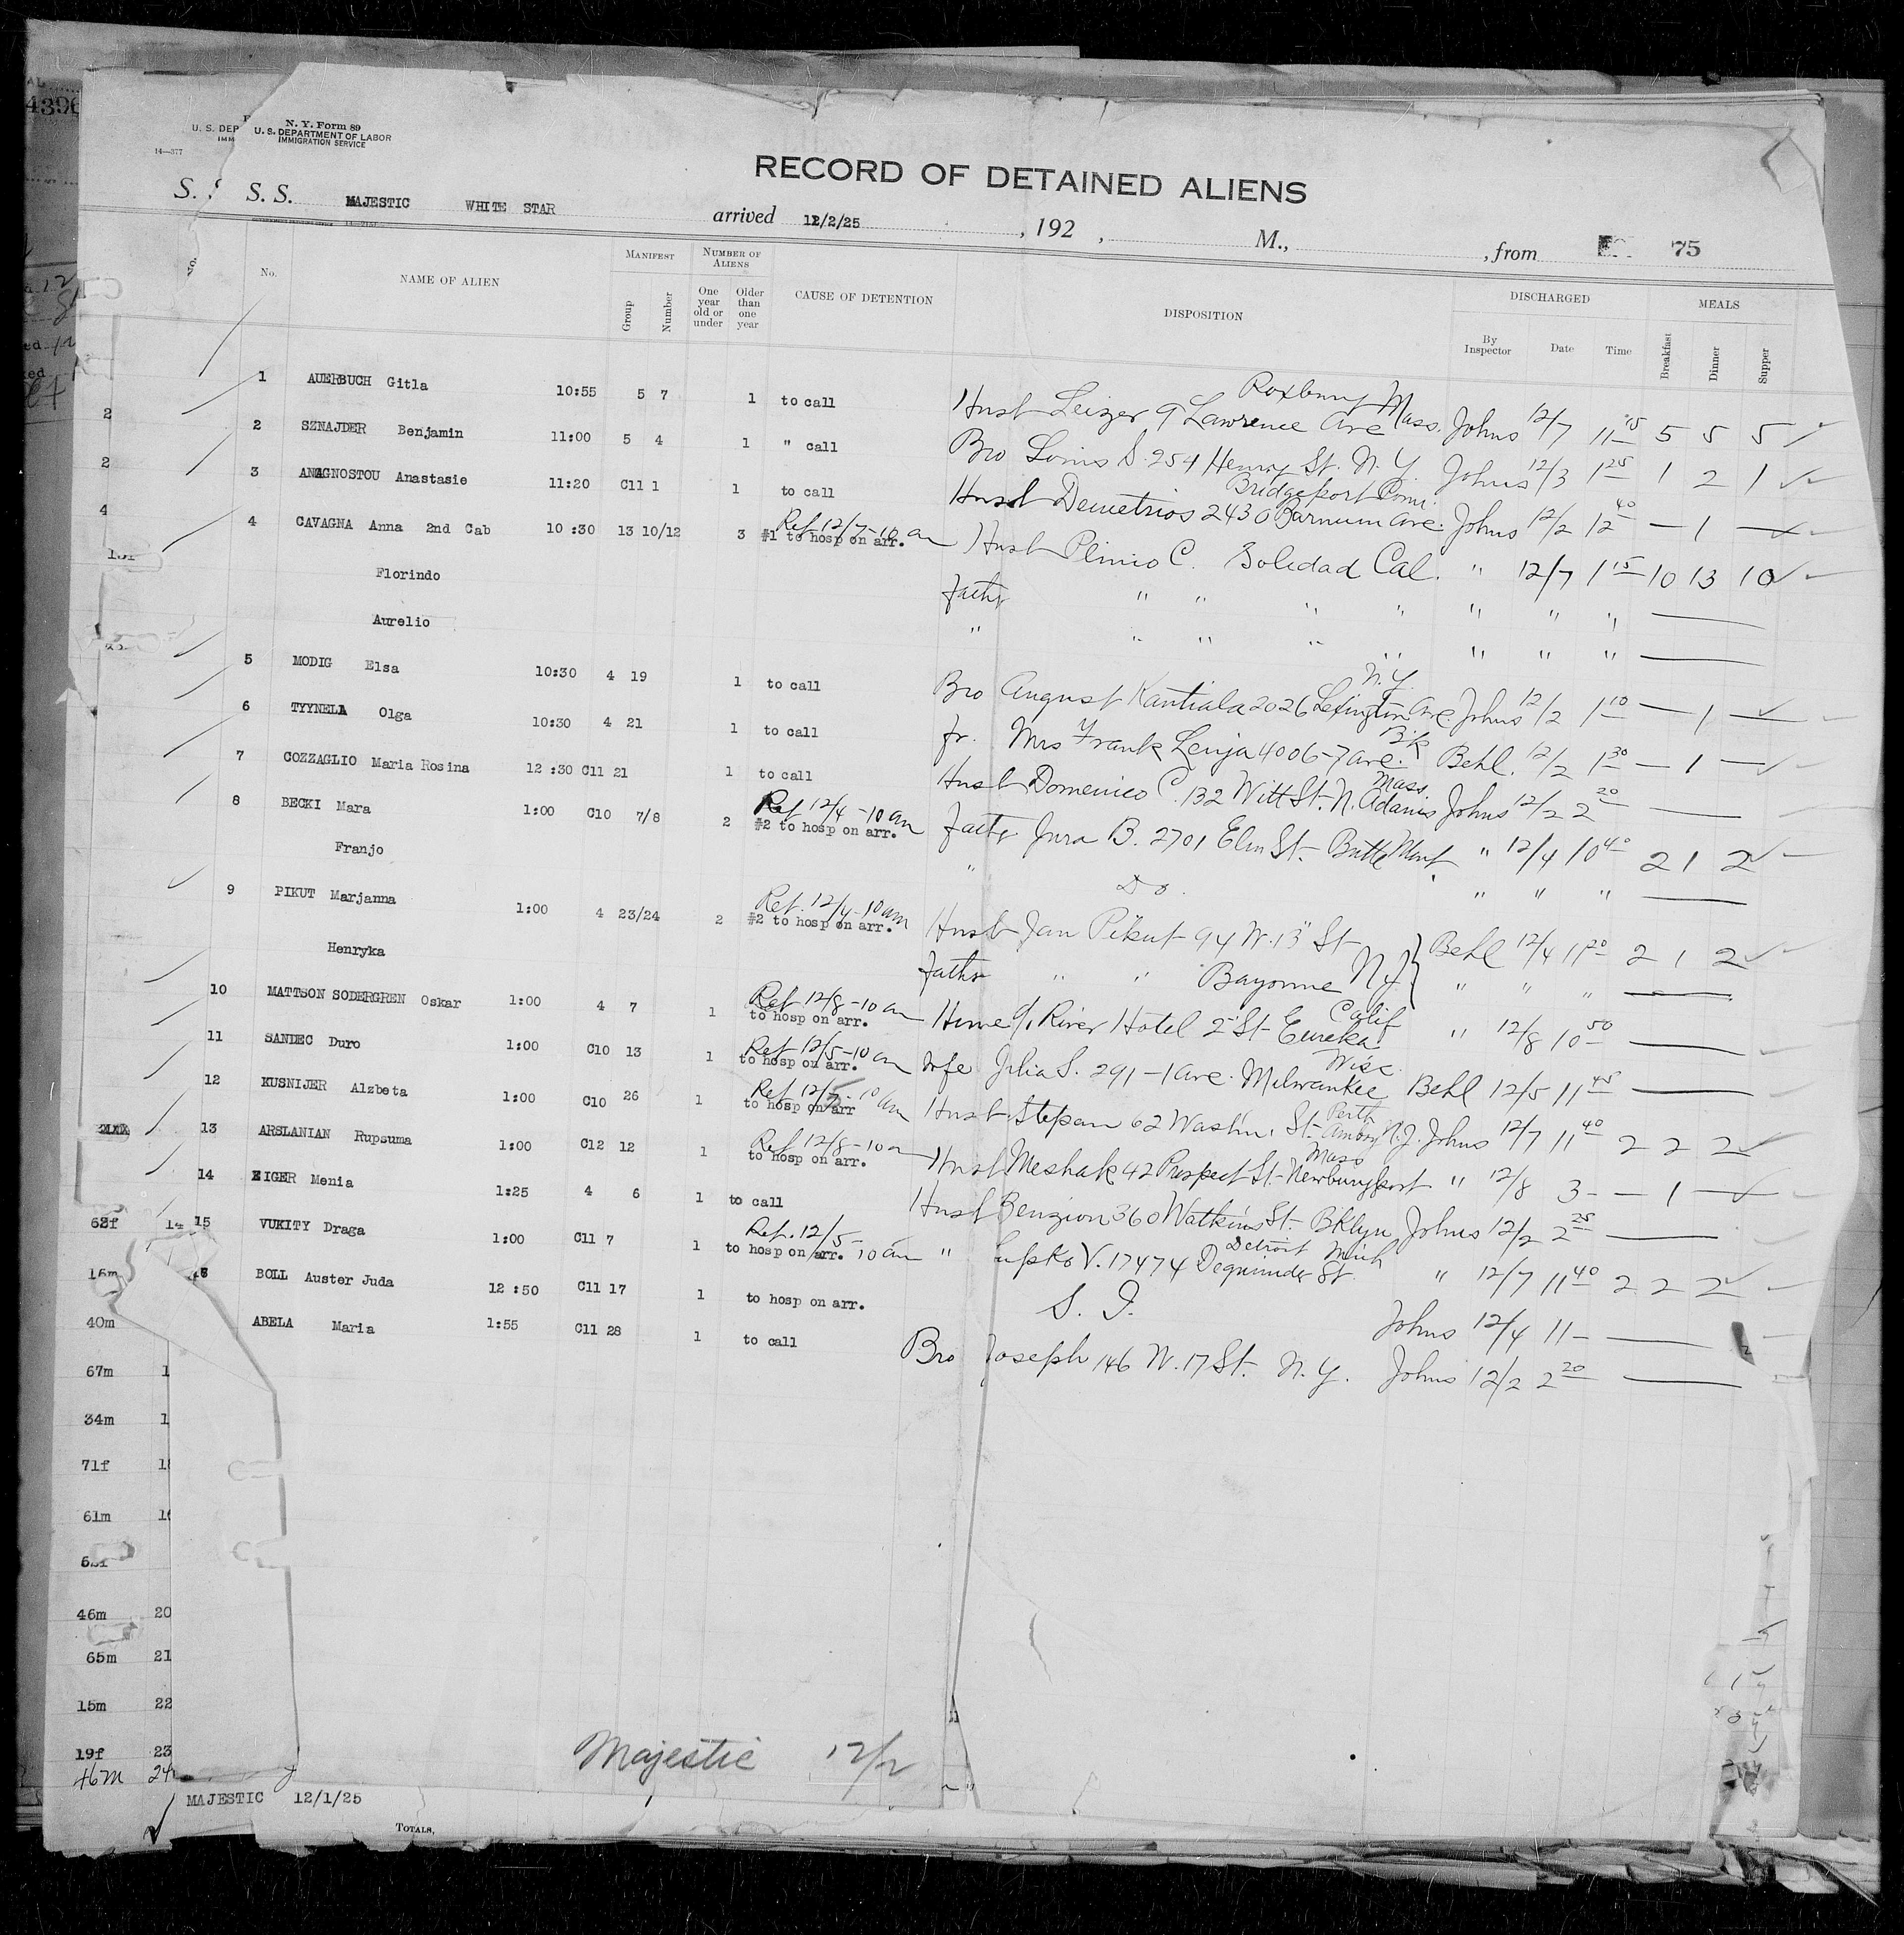 N. Y. Form 89
U. S. DEP U. S. DEPARTMENT OF LABOR
IMM IMMIGRATION SERVICE
14—377
RECORD OF DETAINED ALIENS
S. S. S. MAJESTIC WHITE STAR arrived 12/2/25 , 192 , M., , from 75
No. No. NAME OF ALIEN MANIFEST Group Number NUMBER OF ALIENS One year old or under Older than one year CAUSE OF DETENTION DISPOSITION DISCHARGED By Inspector Date Time MEALS Breakfast Dinner Supper
1 AUERBUCH Gitla 10:55 5 7 1 to call Husb Leizer 9 Lawrence Ave Roxbury Mass. Johns 12/7 11 15 5 5 5
2 SZNAJDER Benjamin 11:00 5 4 1 " call Bro Louis S. 254 Henry St. N. Y. Johns 12/3 1 25 1 2 1
3 ANAGNOSTOU Anastasie 11:20 C11 1 1 to call Husb Demetrios 2430 Barnum Ave. Bridgeport Conn. Johns 12/2 12 40 — 1 —
4 CAVAGNA Anna 2nd Cab 10:30 13 10/12 3 Ref 12/7-10 am #1 to hosp on arr. Husb Plinio C. Soledad Cal. " 12/7 1 15 10 13 10
Florindo Fathr " " " " " " " —
Aurelio " " " " " " " " —
5 MODIG Elsa 10:30 4 19 1 to call Bro August Kantiala 2026 Lexington Ave. N.Y. Johns 12/2 1 10 — 1 —
6 TYYNELA Olga 10:30 4 21 1 to call fr. Mrs Frank Lenja 4006-7 Ave. B'k Behl. 12/2 1 30 — 1 —
7 COZZAGLIO Maria Rosina 12:30 C11 21 1 to call Husb Domenico C. 132 Witt St. N. Adams Mass. Johns 12/2 2 20 —
8 BECKI Mara 1:00 C10 7/8 2 Ref 12/4-10 am #2 to hosp on arr. Fathr Jura B. 2701 Elm St. Butte Mont. " 12/4 10 40 2 1 2
Franjo " Do. " " " —
9 PIKUT Marjanna 1:00 4 23/24 2 Ref. 12/4-10 am #2 to hosp on arr. Husb Jan Pikut 94 W. 13" St Behl 12/4 11 20 2 1 2
Henryka Fathr " " Bayonne N.J. " " " —
10 MATTSON SODERGREN Oskar 1:00 4 7 1 Ref 12/8-10 am to hosp on arr. Home c/o River Hotel 2" St Eureka Calif " 12/8 10 50 —
11 SANDEC Duro 1:00 C10 13 1 Ref 12/5-10 am to hosp on arr. Wfe Julia S. 291-1 Ave. Milwaukee Wisc. Behl 12/5 11 45 —
12 KUSNIJER Alzbeta 1:00 C10 26 1 Ref 12/5-10 am to hosp on arr Husb Stepan 62 Washn. St. Perth Amboy N.J. Johns 12/7 11 40 2 2 2
13 ARSLANIAN Rupsuma 1:00 C12 12 1 Ref 12/8-10 a to hosp on arr. Husb Meshak 42 Prospect St. Newburyport Mass " 12/8 3- — 1 —
14 EIGER Menia 1:25 4 6 1 to call Husb Benzion 360 Watkins St. B'klyn Johns 12/2 2 25 —
62f 14 15 VUKITY Draga 1:00 C11 7 1 Ref. 12/5-10 am to hosp on arr. " V. 17474 Dequinder St. Detroit Mich " 12/7 11 40 2 2 2
16m BOLL Auster Juda 12:50 C11 17 1 to hosp on arr. S. I. Johns 12/4 11- —
40m ABELA Maria 1:55 C11 28 1 to call Bro Joseph 146 W. 17 St. N. Y. Johns 12/2 2 20 —
67m 1
34m 1
71f 18
61m 16
46m 20
65m 21
15m 22
19f 23
46m 24
Majestic 12/2
MAJESTIC 12/1/25
TOTALS,